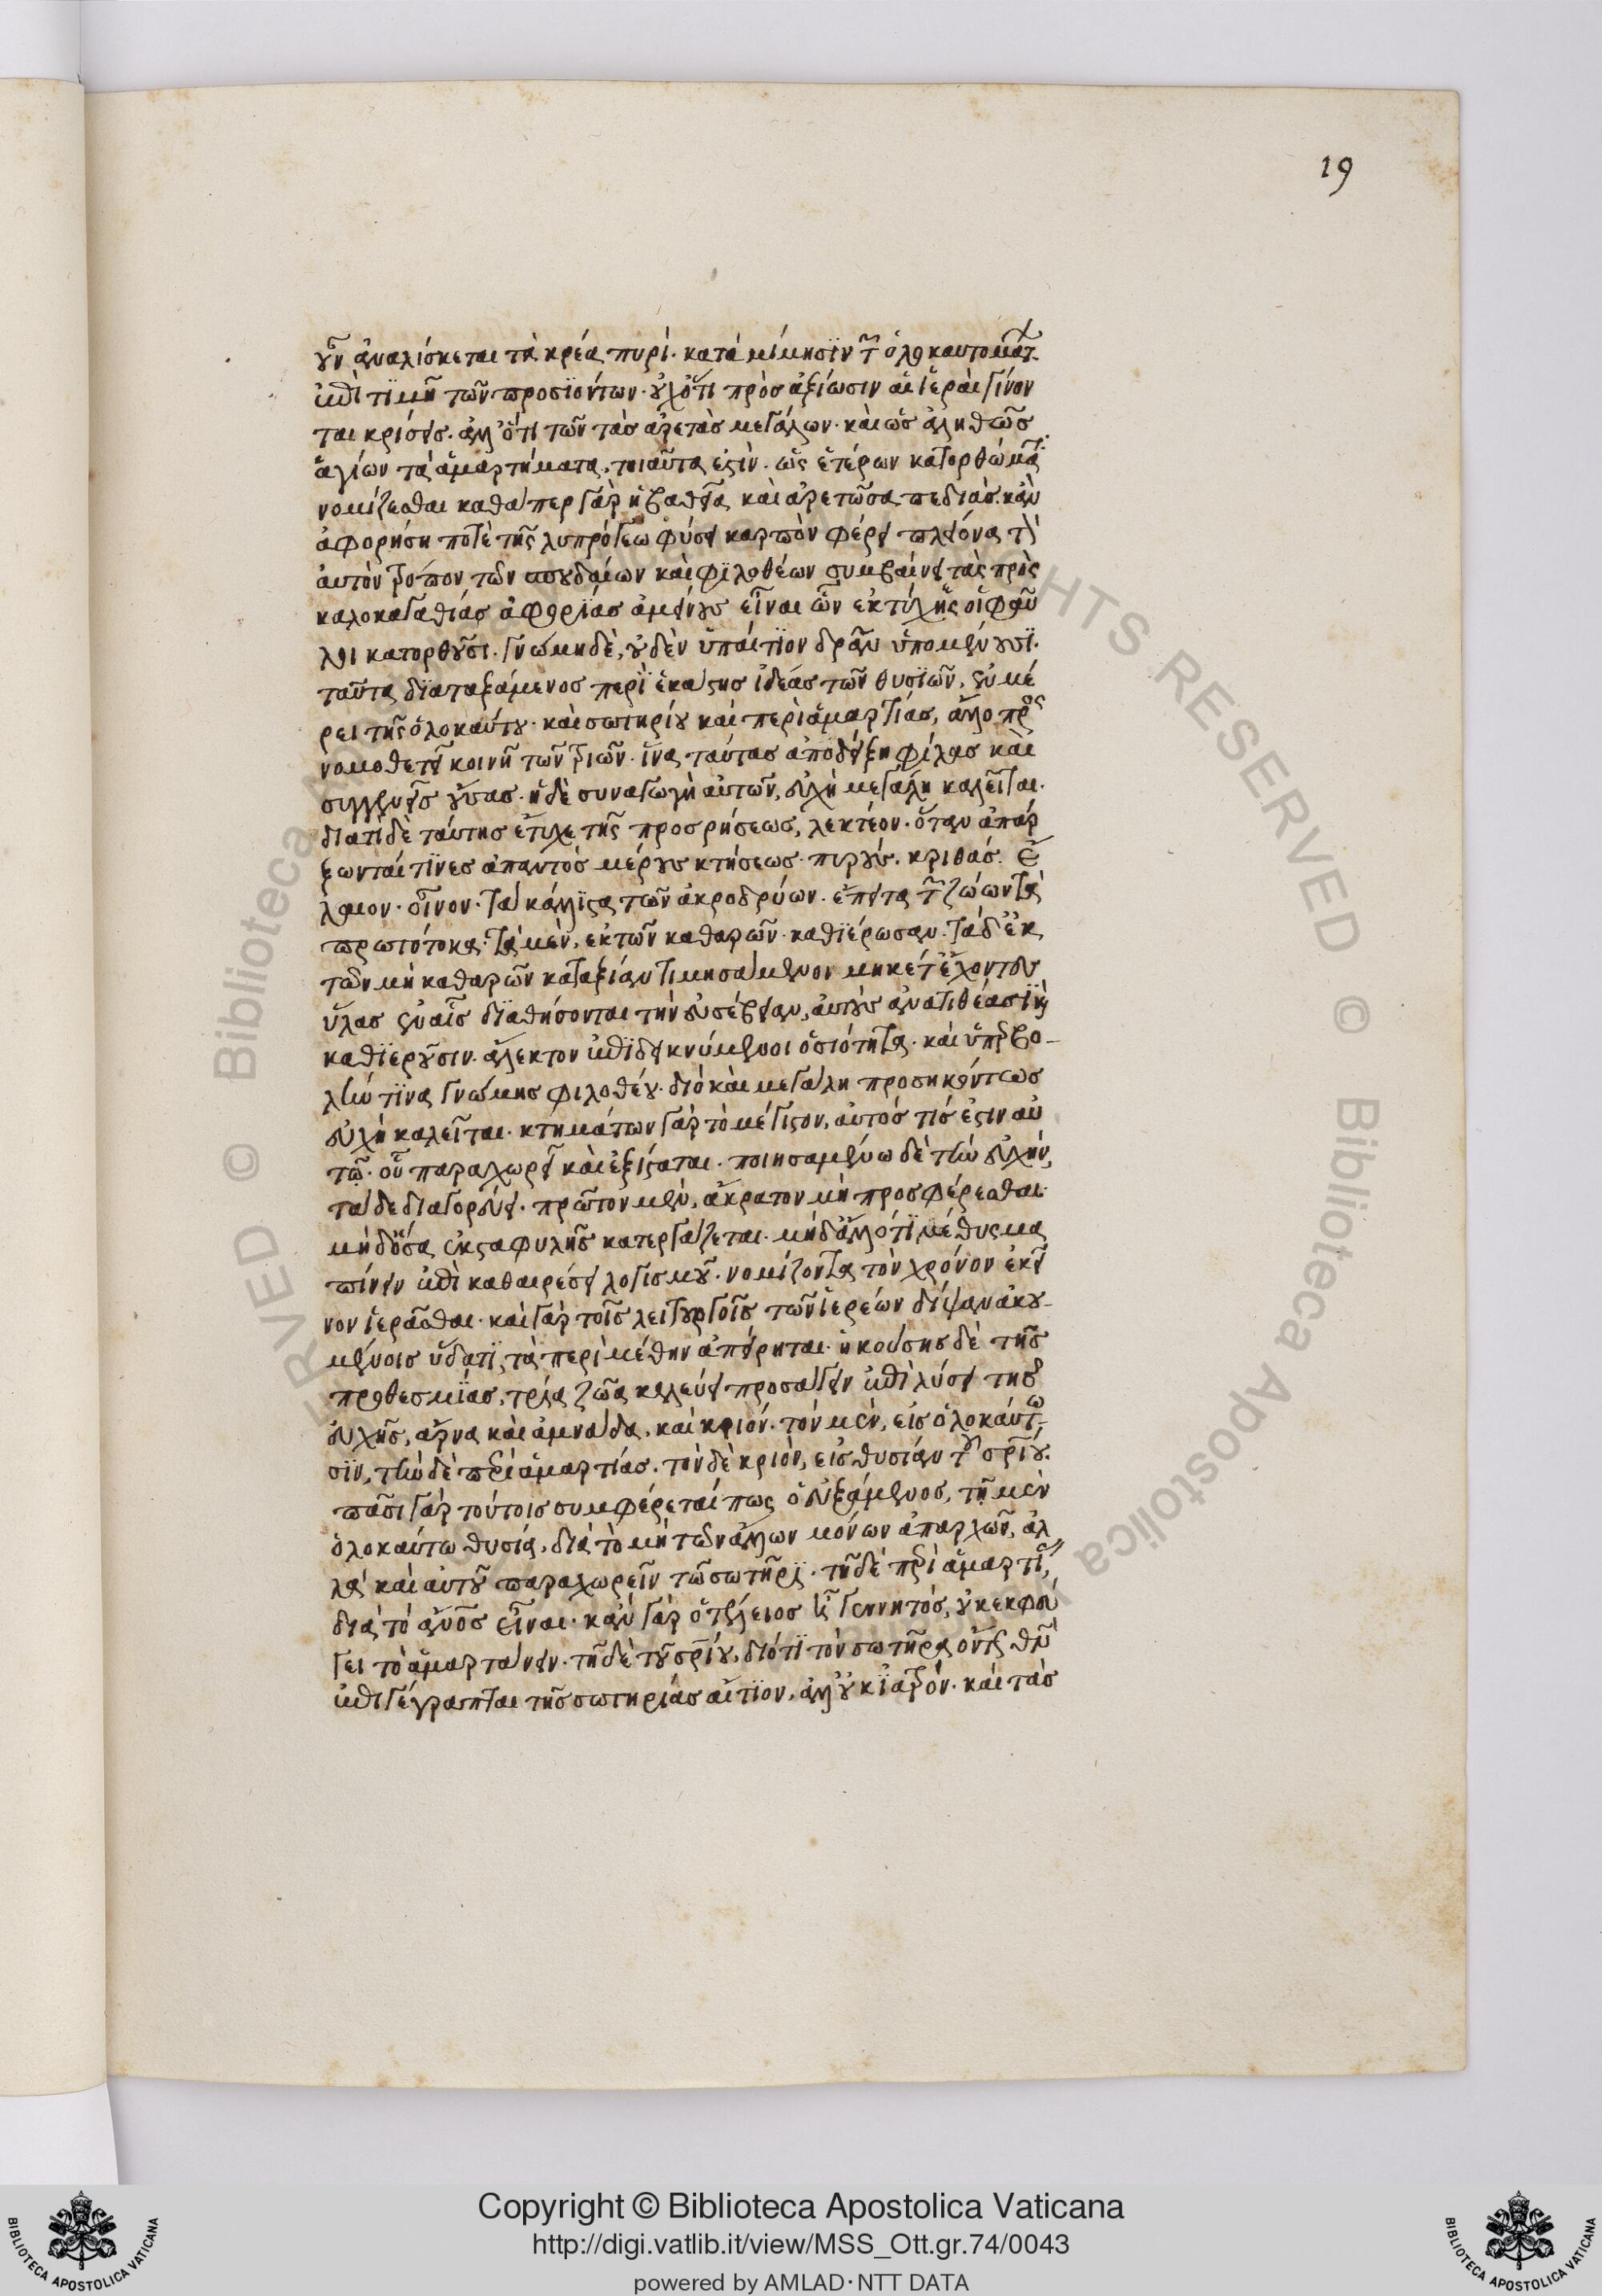 19
οὖν ἀναλίσκεται τὰ κρέα πυρί· κατὰ μίμησϊν τ ὁλοκαυτομάτ
ἐπὶ τϊμῆ τῶν προσϊόντων· οὐχ ὅτι πρὸσ ἀξίωσιν αἱ ἱεραὶ γίνον
ται κρίσεις. ἀλλ' ὅτι τῶν τὰσ ἀρετὰσ μεγάλων· καὶ ὡς ἀληθῶσ
ἁγίων τὰ ἁμαρτήματα, τοιαῦτα ἐστὶν. ὡς ἑτέρων κατορθώματ
νομίζεσθαι καθάπερ γὰρ ἡ βαθεῖα καὶ ἀρετῶσα πεδιὰσ. κἂν
ἀφορήση ποτὲ τῆς λυπρόγεω φύσει καρπὸν φέρει πλείονα τ
αὐτὸν τρόπον τῶν σπουδαίων καὶ φϊλοθέων συμβαίνει τὰς πρὸς
καλοκαγαθίασ ἀφορϊάσ ἀμείνουσ εἶναι ὧν ἐκ τύχης οἱ φαῦ
λοι κατορθοῦσι. γνώμη δὲ, οὐδὲν ὑπαίτϊον δρᾶν ὑπομένουσϊ.
ταῦτα δϊαταξάμενοσ περὶ ἑκάστησ ἰδέασ τῶν θυσϊῶν, ἐν μέ
ρει τῆς ὁλοκαύτου· καὶ σωτηρίου καὶ περὶ ἁμαρτίασ, ἄλλο πρὸς
νομοθετεῖ κοινῆ τῶν τριῶν. ἵνα ταύτασ ἀποδείξη φίλασ καὶ
συγγενεῖσ οὔσασ. ἡ δὲ συναγωγὴ αὐτῶν, εὐχὴ μεγάλη καλεῖται.
διατί δὲ ταύτησ ἔτυχε τῆς προσρήσεωσ, λεκτέον. ὅταν ἀπάρ
ξωνταί τϊνεσ ἀπαντὸσ μέρουσ κτήσεωσ· πυρούς. κριθάσ. ἔ
λαιον· οἶνον. τὰ κάλλϊστα τῶν ἀκροδρύων. ἔπειτα τ ζώων τὰ
πρωτότοκα· τὰ μὲν, ἐκ τῶν καθαρῶν· καθϊέρωσαν. τὰ δ' ἐκ
τῶν μὴ καθαρῶν κατ' ἀξίαν τιμησάμενον μηκέτ' ἔχοντεσ
ὕλασ ἐν αἷσ δϊαθήσονται τὴν εὐσέβειαν, αὐτοὺσ ἀνατιθέασϊ καὶ
καθϊεροῦσιν. ἄλεκτον ἐπϊδεικνύμενοι ὁσιότητα. καὶ ὑπερβο-
λήν τϊνα γνώμησ φιλοθέου. διὸ καὶ μεγάλη προσηκόντωσ
εὐχὴ καλεῖται. κτημάτων γὰρ τὸ μέγιστον, αὐτόσ τίσ ἐστιν αὐ
τῷ· οὗ παραχωρεῖ καὶ ἐξίσταται. ποιησαμένω δὲ τὴν εὐχήν,
τάδε διαγορεύει. πρῶτον μὲν, ἄκρατον μὴ προσφέρεσθαι
μηδ' ὅσα ἐκ σταφυλῆσ κατεργάζεται. μηδ' ἄλλό τϊ μέθυσμα
πίνειν ἐπὶ καθαιρέσει λογισμοῦ. νομίζοντα τὸν χρόνον ἐκεῖ
νον ἱερᾶσθαι. καὶ γὰρ τοῖσ λειτουργοῖσ τῶν ἱερέων δίψαν ἀκου-
μένοισ ὕδατϊ, τὰ περὶ μέθην ἀπείρηται. ἡκούσησ δὲ τῆσ
προθεσμϊάσ, τρία ζῶα κελεύει προσάγειν ἐπὶ λύσει τησ
εὐχῆσ, ἄρνα καὶ ἀμνάδα, καὶ κριόν. τὸν μὲν, εἰσ ὁλοκαύτω
σϊν, τὴν δὲ περὶ ἁμαρτίασ. τὸν δὲ κριὸν, εἰσ θυσίαν τοῦ σρίου.
πᾶσι γὰρ τούτοισ συμφέρεταί πως ὁ εὐξάμενοσ, τῆ μὲν
ὁλοκαύτω θυσία, διὰ τὸ μὴ τῶν ἄλλων μόνων ἀπαρχῶν, ἀλ
λὰ καὶ αὐτοῦ παραχωρεῖν τῶ σωτῆρϊ. τῆ δὲ περὶ ἁμαρτί,
διὰ τὸ ἀνοσ εἶναι. κἂν γὰρ ὁ τέλειοσ ἦ γεννητόσ, οὐκ ἐκφεύ
γει τὸ ἁμαρτάνειν. τῆ δὲ τοῦ σρίου, διότϊ τὸν σωτῆρα ὄντωσ θν
ἐπιγέγραπται τῆσ σωτηρίασ αἴτϊον, ἀλλ' οὐκ ἰατρόν. καὶ τὰσ
Copyright © Biblioteca Apostolica Vaticana
http://digi.vatlib.it/view/MSS_Ott.gr.74/0043
powered by AMLAD·NTT DATA
BIBLIOTECA APOSTOLICA VATICANA
BIBLIOTECA APOSTOLICA VATICANA